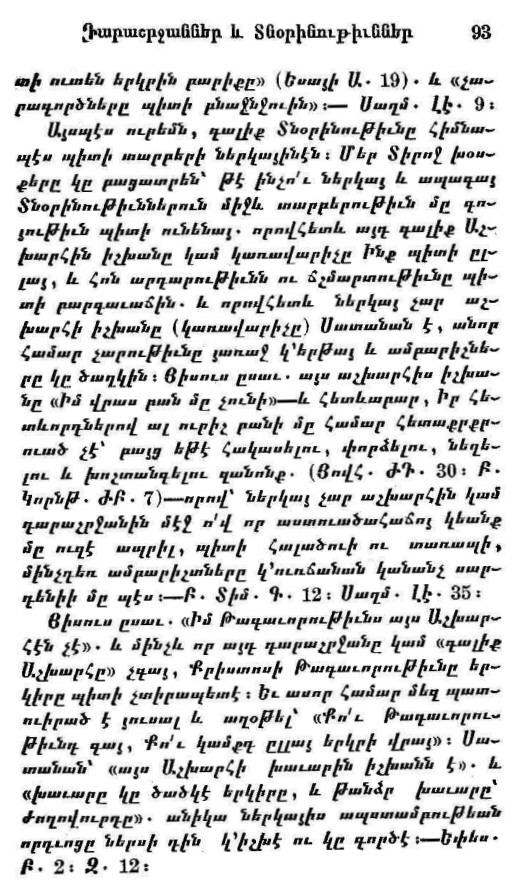 Դարաշրջաններ և Տնօրինութիւններ 93
տի ուտեն երկրին բարիքը» (Եսայի Ա․ 19)․ և «չա-
րագործները պիտի բնաջնջուին»։— Սաղմ․ Լէ․ 9։
Այսպէս ուրեմն, գալիք Տնօրինութիւնը հիմնա-
պէս պիտի տարբերի ներկայինէն։ Մեր Տիրոջ խօս-
քերը կը բացատրեն՝ թէ ինչո՛ւ ներկայ և ապագայ
Տնօրինութիւններուն միջև տարբերութիւն մը գո-
յութիւն պիտի ունենայ․ որովհետև այդ գալիք Աշ-
խարհին իշխանը կամ կառավարիչը Ինք պիտի ըլ-
լայ, և հոն արդարութիւնն ու ճշմարտութիւնը պի-
տի բարգաւաճին․ և որովհետև ներկայ չար աշ-
խարհի իշխանը (կառավարիչը) Սատանան է, անոր
համար չարութիւնը յառաջ կ՚երթայ և ամբարիշնե-
րը կը ծաղկին։ Յիսուս ըսաւ․ այս աշխարհիս իշխա-
նը «Իմ վրաս բան մը չունի»—և հետևաբար, Իր հե-
տևորդներով ալ ուրիշ բանի մը համար հետաքրքր-
ուած չէ՝ բայց եթէ հակառելու, փորձելու, նեղե-
լու և խոշտանգելու զանոնք․ (Յովհ․ ԺԴ․ 30։ Բ․
Կորնթ․ ԺԲ․ 7)—որով՝ ներկայ չար աշխարհին կամ
դարաշրջանին մէջ ո՛վ որ աստուածահաճոյ կեանք
մը ուզէ ապրիլ, պիտի հալածուի ու տառապի,
մինչդեռ ամբարիշտները կ՚ուռճանան կանանչ սար-
դենիի մը պէս։—Բ․ Տիմ․ Գ․ 12։ Սաղմ․ Լէ․ 35։
Յիսուս ըսաւ․ «Իմ Թագաւորութիւնս այս Աշխար-
հէն չէ»․ և մինչև որ այդ դարաշրջանը կամ «գալիք
Աշխարհը» չգայ, Քրիստոսի Թագաւորութիւնը եր-
կիրը պիտի չտիրապետէ։ Եւ ասոր համար մեզ պատ-
ուիրած է յուսալ և աղօթել՝ «Քո՛ւ Թագաւորու-
թիւնդ գայ, Քո՛ւ կամքդ ըլլայ երկրի վրայ»։ Սա-
տանան՝ «այս Աշխարհի խաւարին իշխանն է»․ և
«խաւարը կը ծածկէ երկիրը, և թանձր խաւարը՝
ժողովուրդը»․ անիկա ներկայիս ապստամբութեան
որդւոցը ներսի դին կ՚իշխէ ու կը գործէ։—Եփես․
Բ․ 2։ Զ․ 12։